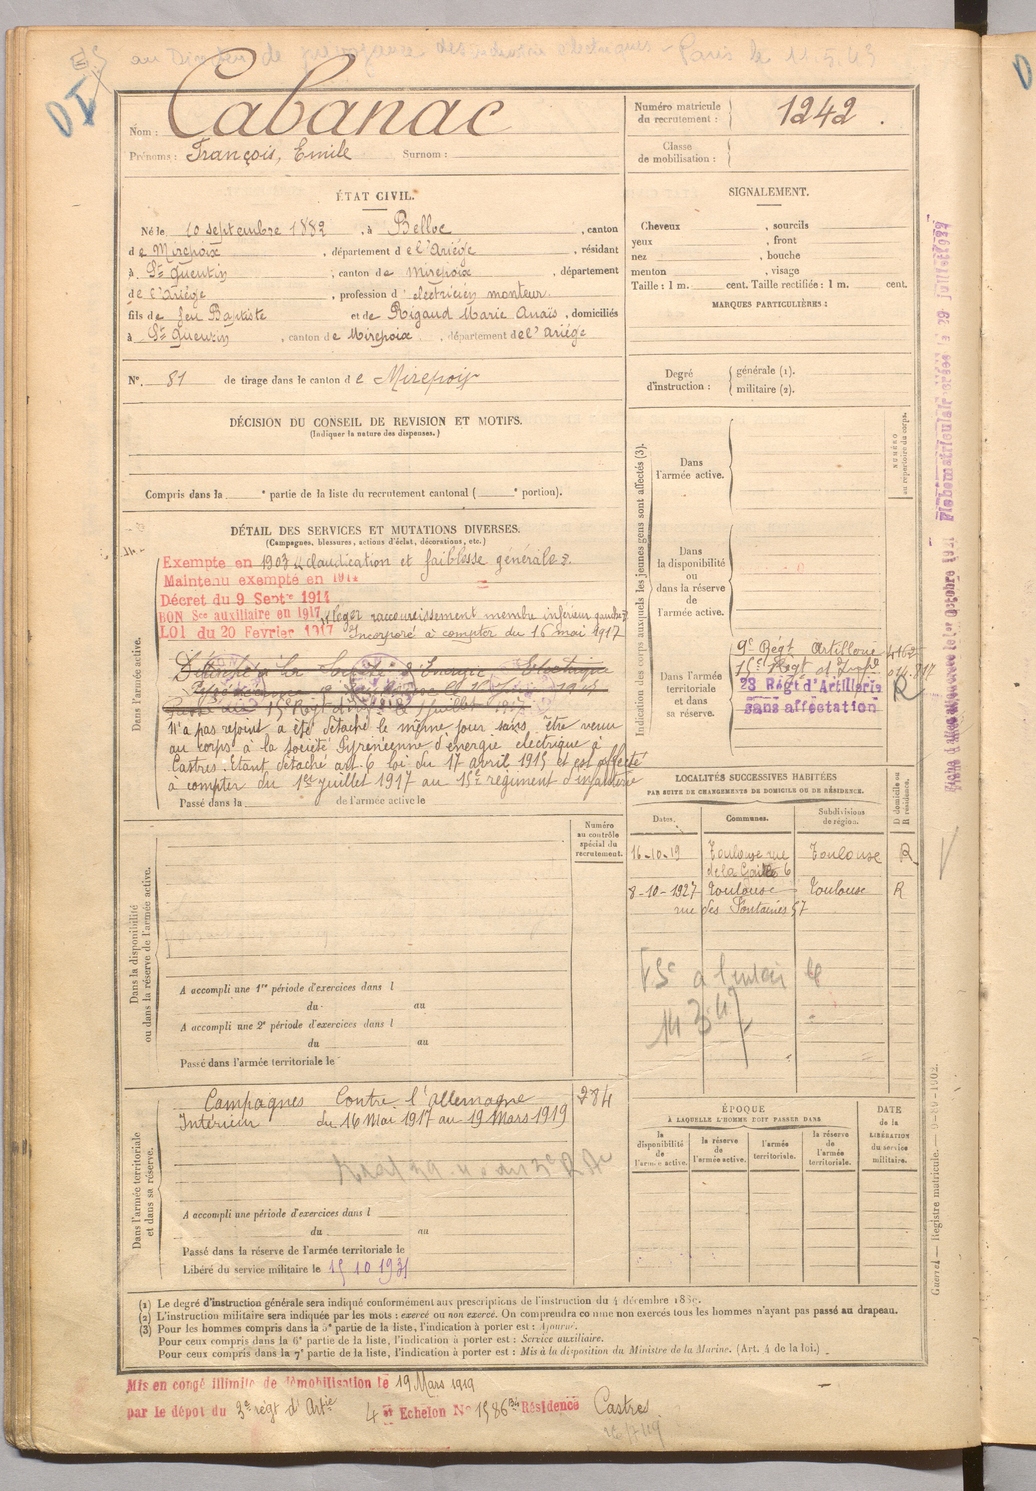 au Paris le 11.5.43
DI
Nom : Cabanac
Prénoms : François, Emile Surnom :
Numéro matricule du recrutement : 1242.
Classe de mobilisation :
ÉTAT CIVIL.
Né le 10 septembre 1882, à Belloc, canton
de Mirepoix, département de l'Ariège, résidant
à St Quentin, canton de Mirepoix, département
de l'Ariège, profession d'électricien monteur
fils de feu Baptiste et de Rigaud Marie Anaïs, domiciliés
à St Quentin, canton de Mirepoix, département de l'Ariège
No. 81 de tirage dans le canton de Mirepoix
SIGNALEMENT.
Cheveux , sourcils
yeux , front
nez , bouche
menton , visage
Taille : 1 m. cent. Taille rectifiée : 1 m. cent.
MARQUES PARTICULIÈRES :
Degré d'instruction : générale (1). militaire (2).
DÉCISION DU CONSEIL DE REVISION ET MOTIFS.
(Indiquer la nature des dispenses.)
Compris dans la e partie de la liste du recrutement cantonal ( e portion).
DÉTAIL DES SERVICES ET MUTATIONS DIVERSES.
(Campagnes, blessures, actions d'éclat, décorations, etc.)
Dans l'armée active.
Exempté en 1903 claudication et faiblesse générale
Maintenu exempté en 1914
Décret du 9 Septre 1914
BON Sce auxiliaire en 1917 léger raccourcissement membre inférieur gauche
LOI du 20 Fevrier 1917 Incorporé à compter du 16 mai 1917
Détaché à la Société d'Energie Electrique
N'a pas rejoint a été détaché le même jour sans être venu
au corps à la Société Pyrénéenne d'énergie électrique à
Castres. Etant détaché art. 6 loi du 17 avril 1915 et est affecté
à compter du 1er juillet 1917 au 15e régiment d'infanterie
Passé dans la de l'armée active le
Indication des corps auxquels les jeunes gens sont affectés (3).
NUMÉRO au répertoire du corps.
Dans l'armée active.
Dans la disponibilité ou dans la réserve de l'armée active.
Dans l'armée territoriale et dans sa réserve.
9e Régt Artillerie
15e Regt d'Infie
23 Régt d'Artillerie R
sans affectation
LOCALITÉS SUCCESSIVES HABITÉES
PAR SUITE DE CHANGEMENTS DE DOMICILE OU DE RÉSIDENCE.
D domicile ou R résidence.
Dates. Communes. Subdivisions de région.
16-10-19 Toulouse rue Toulouse R
de la Gaité 6
8-10-1927 Toulouse Toulouse R
rue des Fontaines 57
Numéro au contrôle spécial du recrutement.
Dans la disponibilité ou dans la réserve de l'armée active.
A accompli une 1re période d'exercices dans l
du au
A accompli une 2e période d'exercices dans l
du au
Passé dans l'armée territoriale le
Dans l'armée territoriale et dans sa réserve.
Campagnes Contre l'Allemagne 284
Intérieur du 16 Mai 1917 au 19 Mars 1919
A accompli une période d'exercices dans l
du au
Passé dans la réserve de l'armée territoriale le
Libéré du service militaire le 15 10 1931
ÉPOQUE
À LAQUELLE L'HOMME DOIT PASSER DANS
la disponibilité de l'armée active.
la réserve de l'armée active.
l'armée territoriale.
la réserve de l'armée territoriale.
DATE de la LIBÉRATION du service militaire.
(1) Le degré d'instruction générale sera indiqué conformément aux prescriptions de l'instruction du 4 décembre
(2) L'instruction militaire sera indiquée par les mots : exercé ou non exercé. On comprendra comme non exercés tous les hommes n'ayant pas passé au drapeau.
(3) Pour les hommes compris dans la 5e partie de la liste, l'indication à porter est : Ajourné.
Pour ceux compris dans la 6e partie de la liste, l'indication à porter est : Service auxiliaire.
Pour ceux compris dans la 7e partie de la liste, l'indication à porter est : Mis à la disposition du Ministre de la Marine. (Art. 4 de la loi.)
Mis en congé illimité de démobilisation le 19 Mars 1919
par le dépôt du 3e régt d'Artie 4e Echelon No 1586 Résidence Castres
Registre matricule.